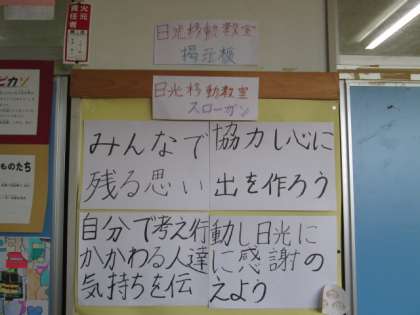 火元
責任者
日光移動教室
掲示板
日光移動教室
スローガン
ピカソ
ものたち
みんなで協力し心に
残る思い出を作ろう
自分で考え行動し日光に
かかわる人達に感謝の
気持ちを伝えよう